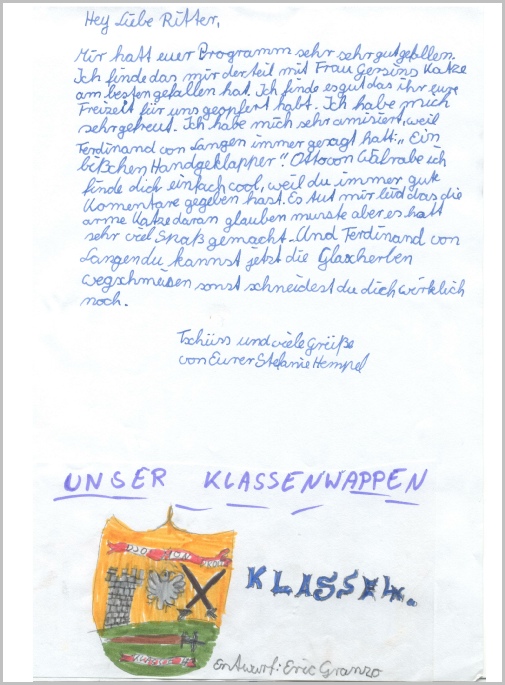 Hey Liebe Ritter,
Mir hatt euer Programm sehr sehr gut gefallen.
Ich finde das mir der teil mit Frau Gersins Katze
am besten gefallen hat. Ich finde es gut das ihr eure
Freizeit für uns geopfert habt. Ich habe mich
sehr gefreut. Ich habe mich sehr amisiert, weil
Ferdinand von Langen immer gesagt hatt: „Ein
bißchen Handgeklapper". Otto von Walrabe ich
finde dich einfach cool, weil du immer gute
Komentare gegeben hast. Es tut mir leid das die
arme Katze daran glauben musste aber es hatt
sehr viel Spaß gemacht. Und Ferdinand von
Langen du kannst jetzt die Glascherben
wegschmeisen sonst schneidest du dich wirklich
noch.
Tschüss und viele Grüße
von Eurer Stefanie Hempel
UNSER KLASSENWAPPEN
KLASSE 4.
Entwurf: Eric Granzo